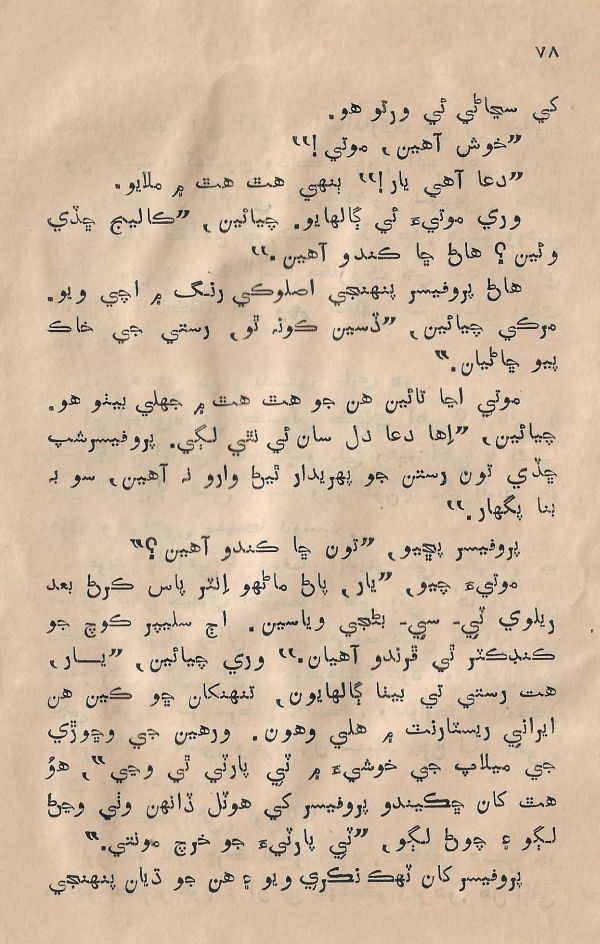 ٧٨
کي سڃاڻي ئي ورتو هو.
”خوش آهين, موتي!“
”دعا آهي يار!“ ٻنهي هٿ هٿ ۾ ملايو.
وري موتيءَ ئي ڳالهايو. چيائين, ”ڪاليج ڇڏي
وئين؟ هاڻ ڇا ڪندو آهين.“
هاڻ پروفيسر پنهنجي اصلوڪي رنگ ۾ اچي ويو.
مرڪي چيائين, ”ڏسين ڪونہ ٿو, رستي جي خاڪ
پيو ڇاڻيان.“
موتي اڃا تائين هن جو هٿ هٿ ۾ جهلي بيٺو هو.
چيائين, ”اِها دعا دل سان ئي نٿي لڳي. پروفيسرشپ
ڇڏي تون رستن جو پهريدار ٿيڻ وارو نہ آهين, سو بہ
بنا پگهار.“
پروفيسر پڇيو, ”تون ڇا ڪندو آهين؟“
موتيءَ چيو, ”يار, پاڻ ماڻهو اِنٽر پاس ڪرڻ بعد
ريلوي ٽي- سي- بڻجي وياسين. اڄ سليپر ڪوچ جو
ڪنڊڪٽر ٿي ڦرندو آهيان.“ وري چيائين, ”يــار,
هت رستي تي بيٺا ڳالهايون, تنهنکان ڇو ڪين هن
ايراني ريسٽارنٽ ۾ هلي وهون. ورهين جي وڇوڙي
جي ميلاپ جي خوشيءَ ۾ ٽي پارٽي ٿي وڃي“, هوُ
هٿ کان ڇڪيندو پروفيسر کي هوٽل ڏانهن وٺي وڃڻ
لڳو ۽ چوڻ لڳو, ”ٽي پارٽيءَ جو خرچ مونتي.“
پروفيسر کان ٽهڪ نڪري ويو ۽ هن جو ڌيان پنهنجي